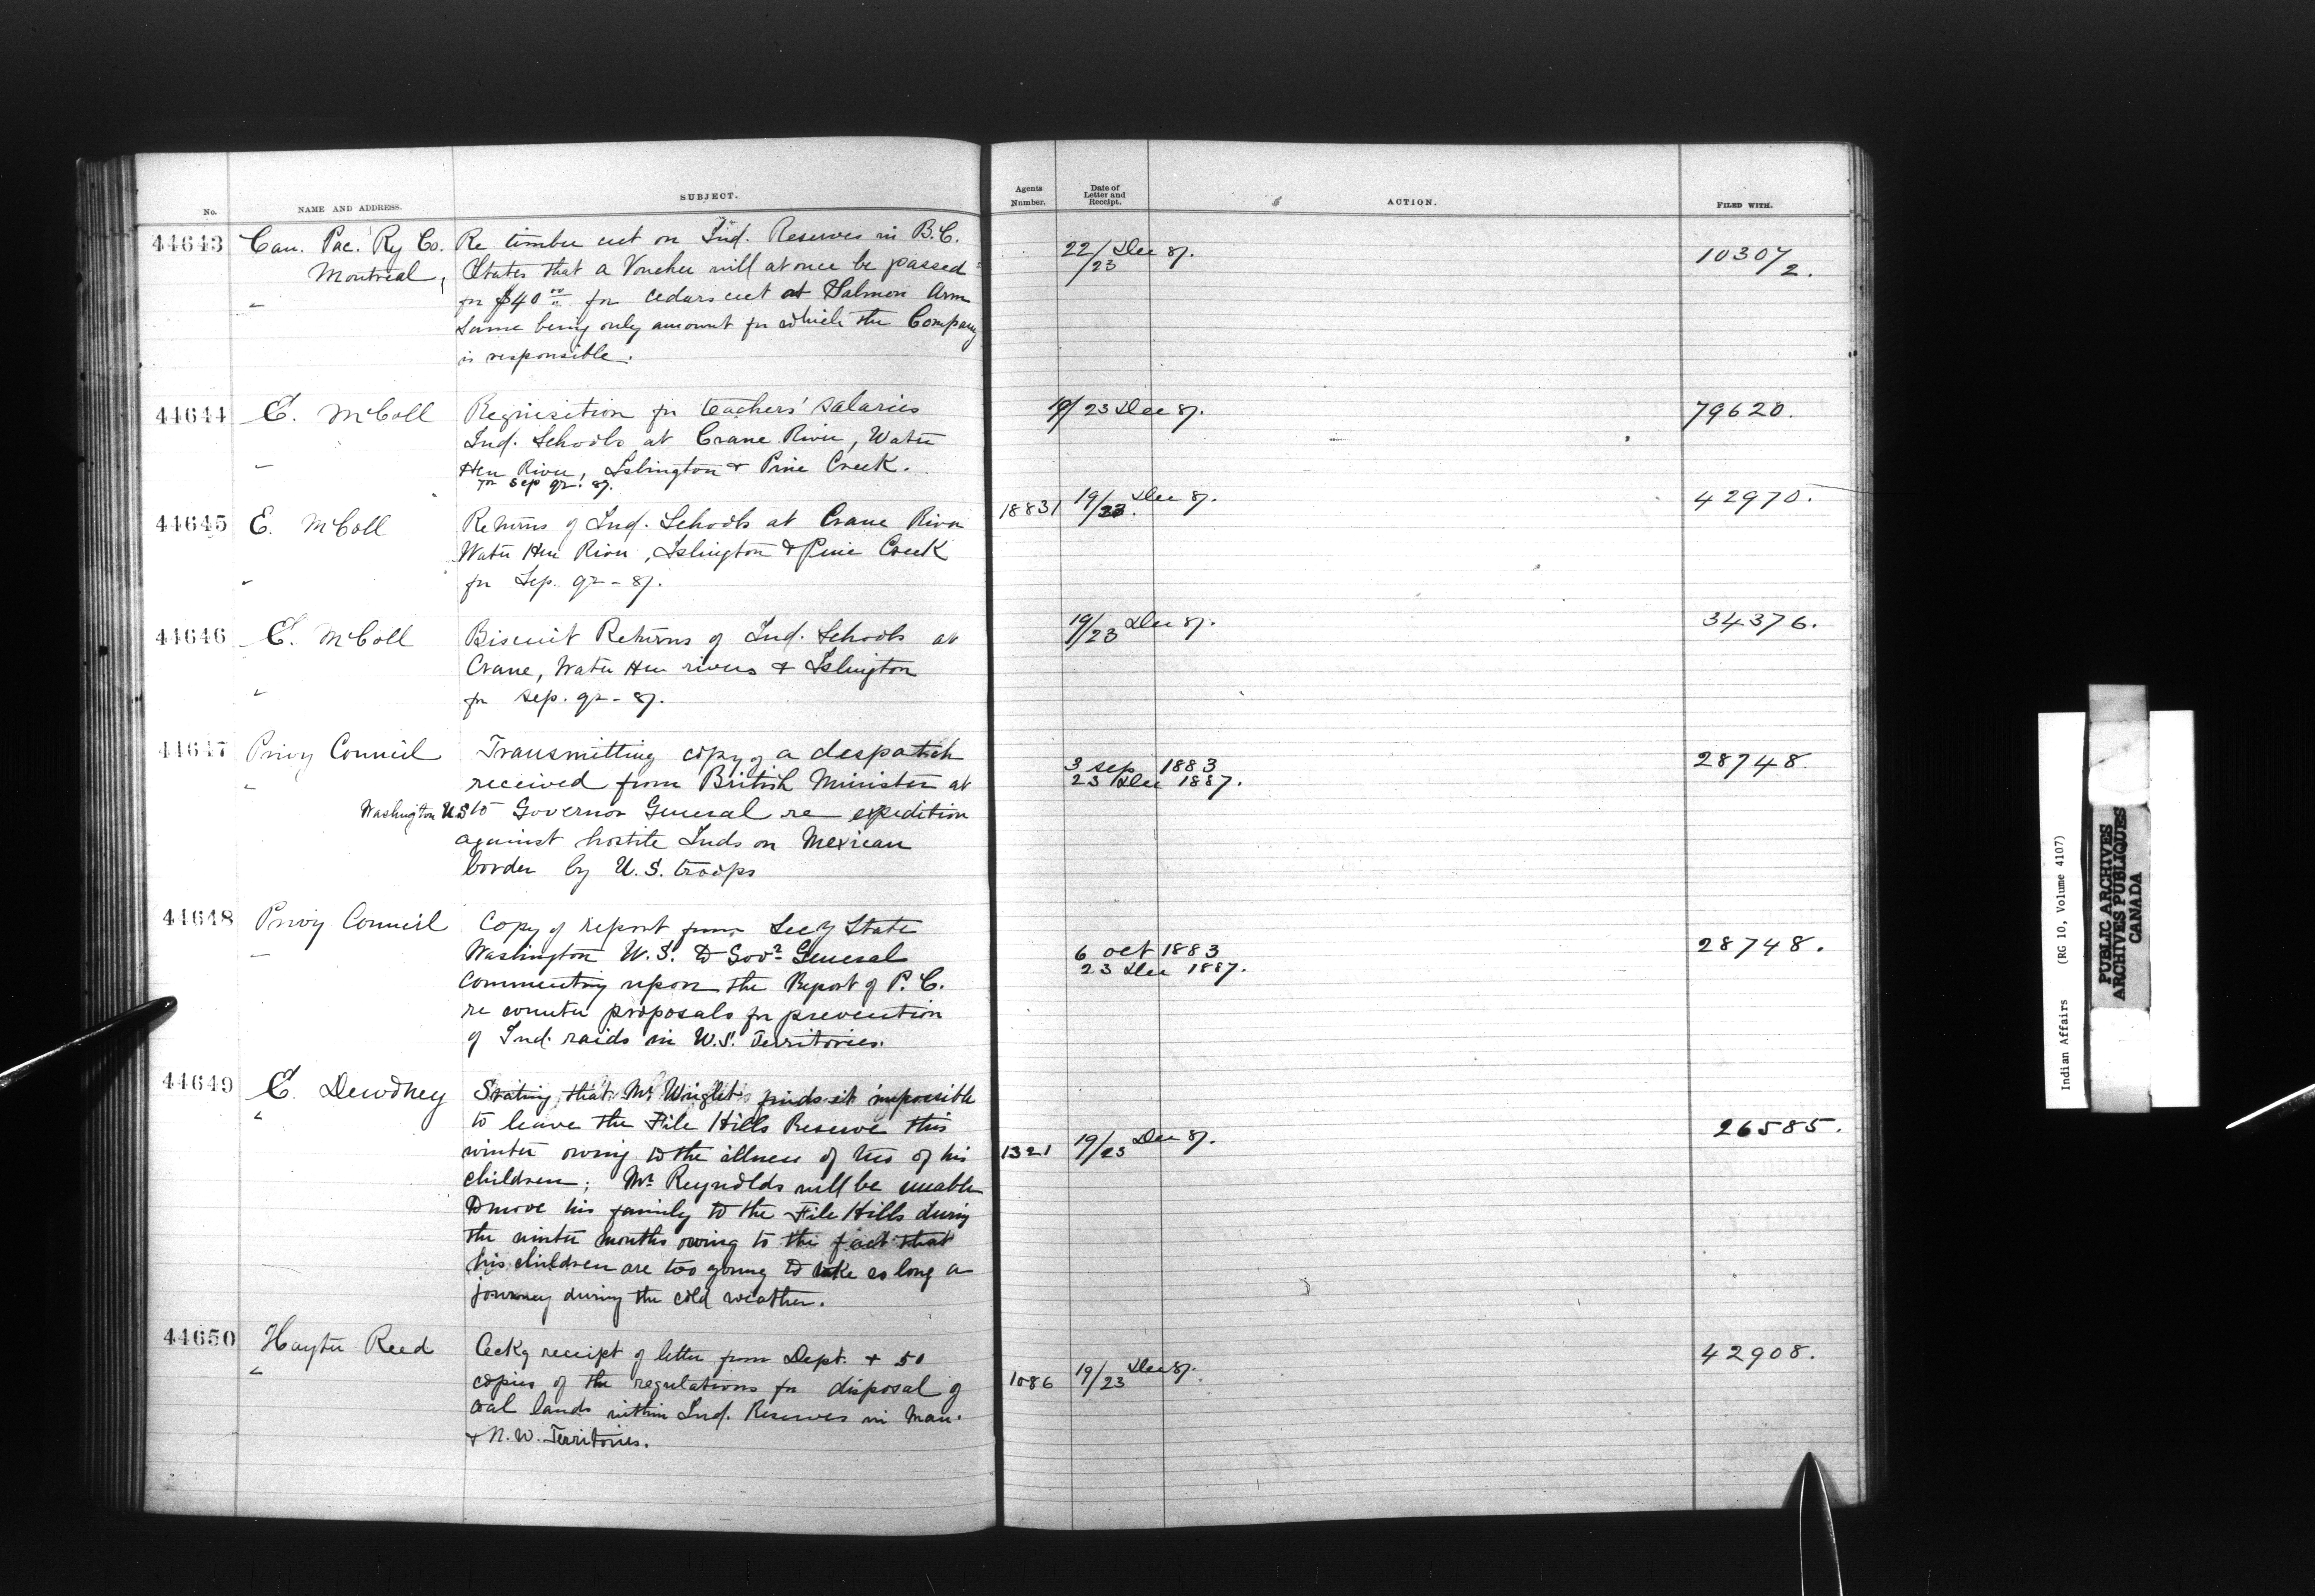 No. NAME AND ADDRESS. SUBJECT. Agents Number. Date of Letter and Receipt. ACTION. FILED WITH.
44643 Can. Pac. Ry Co. Re timber cut on Ind. Reserves in B.C. 22/23 Dec 87. 10307/2.
Montreal, States that a Voucher will at once be passed
" for $40 00 for cedars cut at Salmon Arm
same being only amount for which the Company
is responsible.
44644 E. McColl Requisition for teachers' salaries 19/23 Dec 87. 79620.
Ind. Schools at Crane River, Water
" Hen River, Islington & Pine Creek.
for Sep qr. 87.
44645 E. McColl Returns of Ind. Schools at Crane River 18831 19/23. Dec 87. 42970.
Water Hen River, Islington & Pine Creek
" for Sep. qr - 87.
44646 E. McColl Biscuit Returns of Ind. Schools at 19/23 Dec 87. 34376.
Crane, Water Hen rivers & Islington
" for Sep. qr - 87.
44647 Privy Council Transmitting copy of a despatch 3 Sep 1883 28748.
" received from British Minister at 23 Dec 1887.
Washington U.S to Governor General re expedition
against hostile Inds on Mexican
border by U.S. troops
44648 Privy Council Copy of report from Secy State 6 Oct 1883 28748.
" Washington U.S. to Govr General 23 Dec 1887.
commenting upon the Report of P.C.
re counter proposals for prevention
of Ind. raids in U.S. Territories.
44649 E. Dewdney Stating that Mr Wright finds it impossible
" to leave the File Hills Reserve this 26585.
winter owing to the illness of two of his 1321 19/23 Dec 87.
children; Mr Reynolds will be unable
to move his family to the File Hills during
the winter months owing to the fact that
his children are too young to take so long a
journey during the cold weather.
44650 Hayter Reed Ackg receipt of letter from Dept. & 50 42908.
" copies of the regulations for disposal of 1086 19/23 Dec 87.
coal lands within Ind. Reserves in Man.
& N.W. Territories.
Indian Affairs (RG 10, Volume 4107)
PUBLIC ARCHIVES
ARCHIVES PUBLIQUES
CANADA